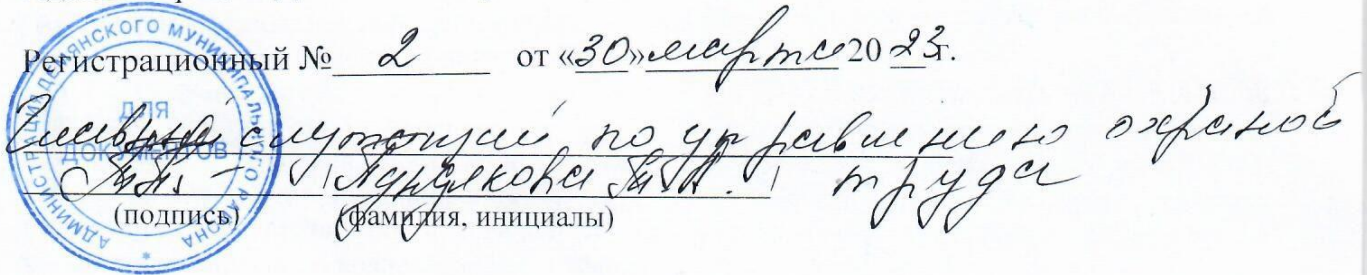 Регистрационный № 2 от «30» марта 20 23 г.
Главный служащий по управлению охраной
труда
(подпись) (фамилия, инициалы)
АДМИНИСТРАЦИЯ ДЕМЯНСКОГО МУНИЦИПАЛЬНОГО РАЙОНА
ДЛЯ
ДОКУМЕНТОВ